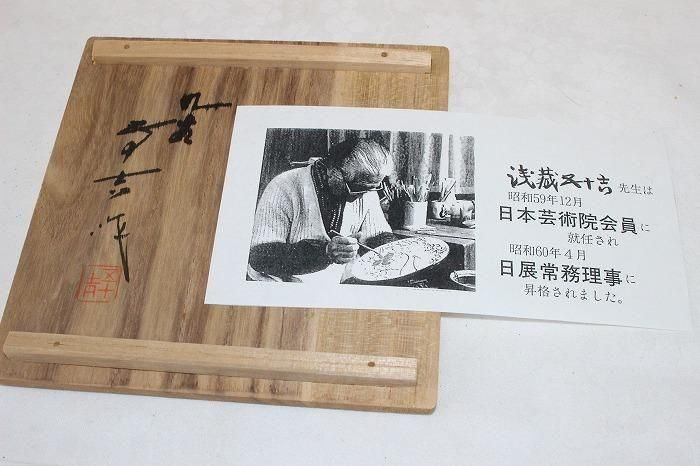 浅蔵五十吉 先生は
昭和59年12月
日本芸術院会員に
就任され
昭和60年4月
日展常務理事に
昇格されました。